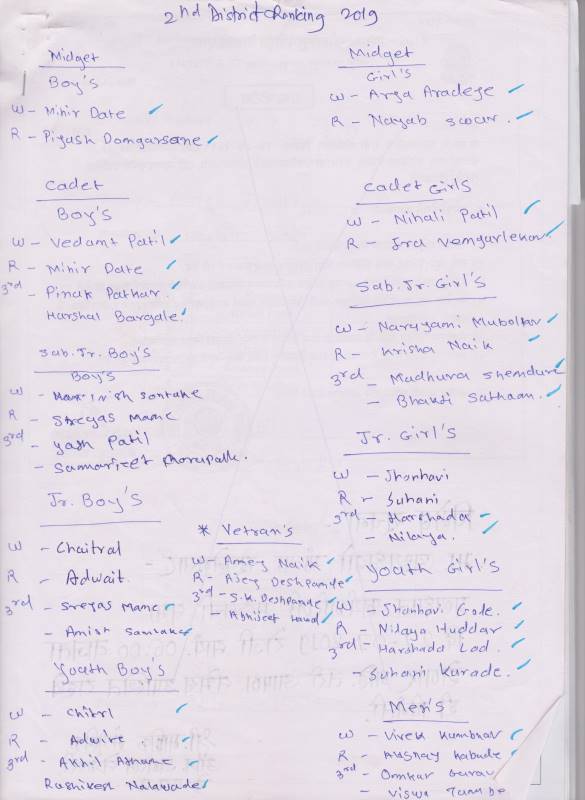 2nd District Ranking 2019
Midget
Boy's
W - Mihir Date
R - Piyush Domgarsane
Cadet
Boy's
W - Vedant Patil
R - Mihir Date
3rd - Pinak Pathar.
Harshal Bargale.
Sub. Jr. Boy's
Boy's
W - sontake
R - Shreyas Mane
3rd - Yash Patil
- Samarjeet
Jr. Boy's
W - Chaitral
R - Adwait.
3rd - Sreyas Mane
- Amish Santake
Youth Boy's
W - Chitrl
R - Adwite
3rd - Akhil
Rushikesh Nalawade
* Vetran's
W - Amey Naik
R - Ajey Deshpande
3rd - S.K. Deshpande
- Abhijeet
Midget
Girl's
W - Arya Aradeye
R - Nayab
Cadet Girls
W - Nihali Patil
R - Ira Vengurlekar
Sab. Jr. Girl's
W - Narayani
R - Krisha Naik
3rd - Madhura Shemdure
- Bhakti Sathaam.
Jr. Girl's
W - Jhanhavi
R - Suhani
3rd - Harshada
- Nilaya.
Youth Girl's
W - Jhanhavi Gole.
R - Nidaya Huddar
3rd - Harshada Lad.
- Suhani Kurade.
Men's
W - Vivek Kumbhar
R - Kabade
3rd - Omkar Gurav
- Viswa